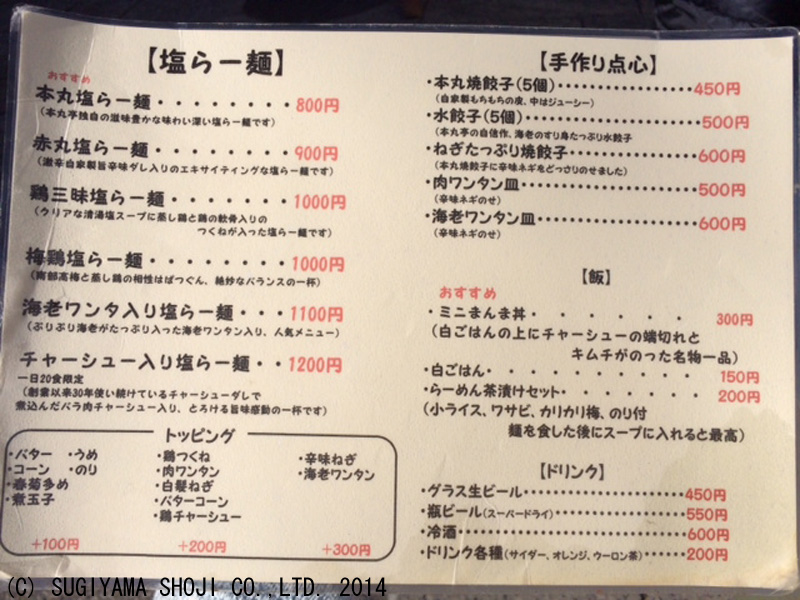 【塩らー麺】
おすすめ
本丸塩らー麺・・・・・・・・800円
（本丸亭独自の滋味豊かな味わい深い塩らー麺です）
赤丸塩らー麺・・・・・・・・900円
（激辛自家製旨辛味ダレ入りのエキサイティングな塩らー麺です）
鶏三昧塩らー麺・・・・・・・1000円
（クリアな清湯塩スープに蒸し鶏と鶏の軟骨入りの
つくねが入った塩らー麺です）
梅鶏塩らー麺・・・・・・・・1000円
（南部高梅と蒸し鶏の相性はばつぐん、絶妙なバランスの一杯）
海老ワンタ入り塩らー麺・・・1100円
（ぷりぷり海老がたっぷり入った海老ワンタン入り、人気メニュー）
チャーシュー入り塩らー麺・・1200円
一日20食限定
（創業以来30年使い続けているチャーシューダレで
煮込んだバラ肉チャーシュー入り、とろける旨味感動の一杯です）
トッピング
・バター ・うめ
・コーン ・のり
・春菊多め
・煮玉子
+100円
・鶏つくね
・肉ワンタン
・白髪ねぎ
・バターコーン
・鶏チャーシュー
+200円
・辛味ねぎ
・海老ワンタン
+300円
【手作り点心】
・本丸焼餃子（5個）・・・・・・・・・・・・・・・450円
（自家製もちもちの皮、中はジューシー）
・水餃子（5個）・・・・・・・・・・・・・・・・・・500円
（本丸亭の自信作、海老のすり身たっぷり水餃子
・ねぎたっぷり焼餃子・・・・・・・・・・・・・・600円
（本丸焼餃子に辛味ネギをどっさりのせました）
・肉ワンタン皿・・・・・・・・・・・・・・・・・・500円
（辛味ネギのせ）
・海老ワンタン皿・・・・・・・・・・・・・・・・600円
（辛味ネギのせ）
【飯】
おすすめ
・ミニまんま丼・・・・・・・300円
（白ごはんの上にチャーシューの端切れと
キムチがのった名物一品）
・白ごはん・・・・・・・・・・150円
・らーめん茶漬けセット・・・・・・・200円
（小ライス、ワサビ、カリカリ梅、のり付
麺を食した後にスープに入れると最高）
【ドリンク】
・グラス生ビール・・・・・・・・・・・・・・・・・・450円
・瓶ビール（スーパードライ）・・・・・・・・・・・・・・・550円
・冷酒・・・・・・・・・・・・・・・・・・・・・・・・・・600円
・ドリンク各種（サイダー、オレンジ、ウーロン茶）・・・・・・200円
(C) SUGIYAMA SHOJI CO.,LTD. 2014